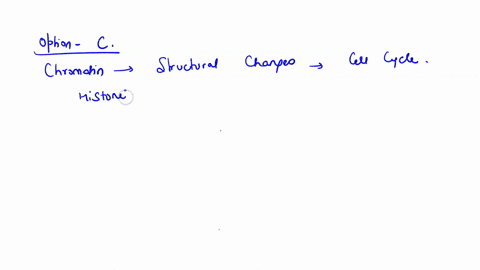 Option - C.
Chromatin → Structural Changes → Cell Cycle.
Histone